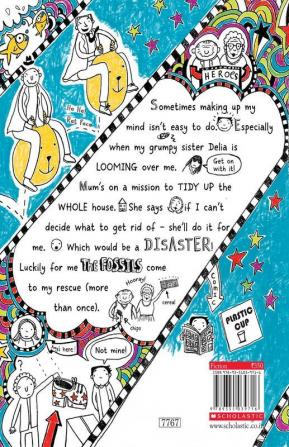 HEROES
Ho Ho
Rat Face
Sometimes making up my
mind isn't easy to do. Especially
when my grumpy sister Delia is
LOOMING over me.
Get on
with it!
Mum's on a mission to TIDY UP the
WHOLE house. She says if I can't
decide what to get rid of - she'll do it for
me. Which would be a DISASTER!
Luckily for me THE FOSSILS come
to my rescue (more
than once).
Hooray!
cereal
chips
Comic
PLASTIC
CUP
Not mine!
7767
Fiction
₹350
SCHOLASTIC
www.scholastic.co.in